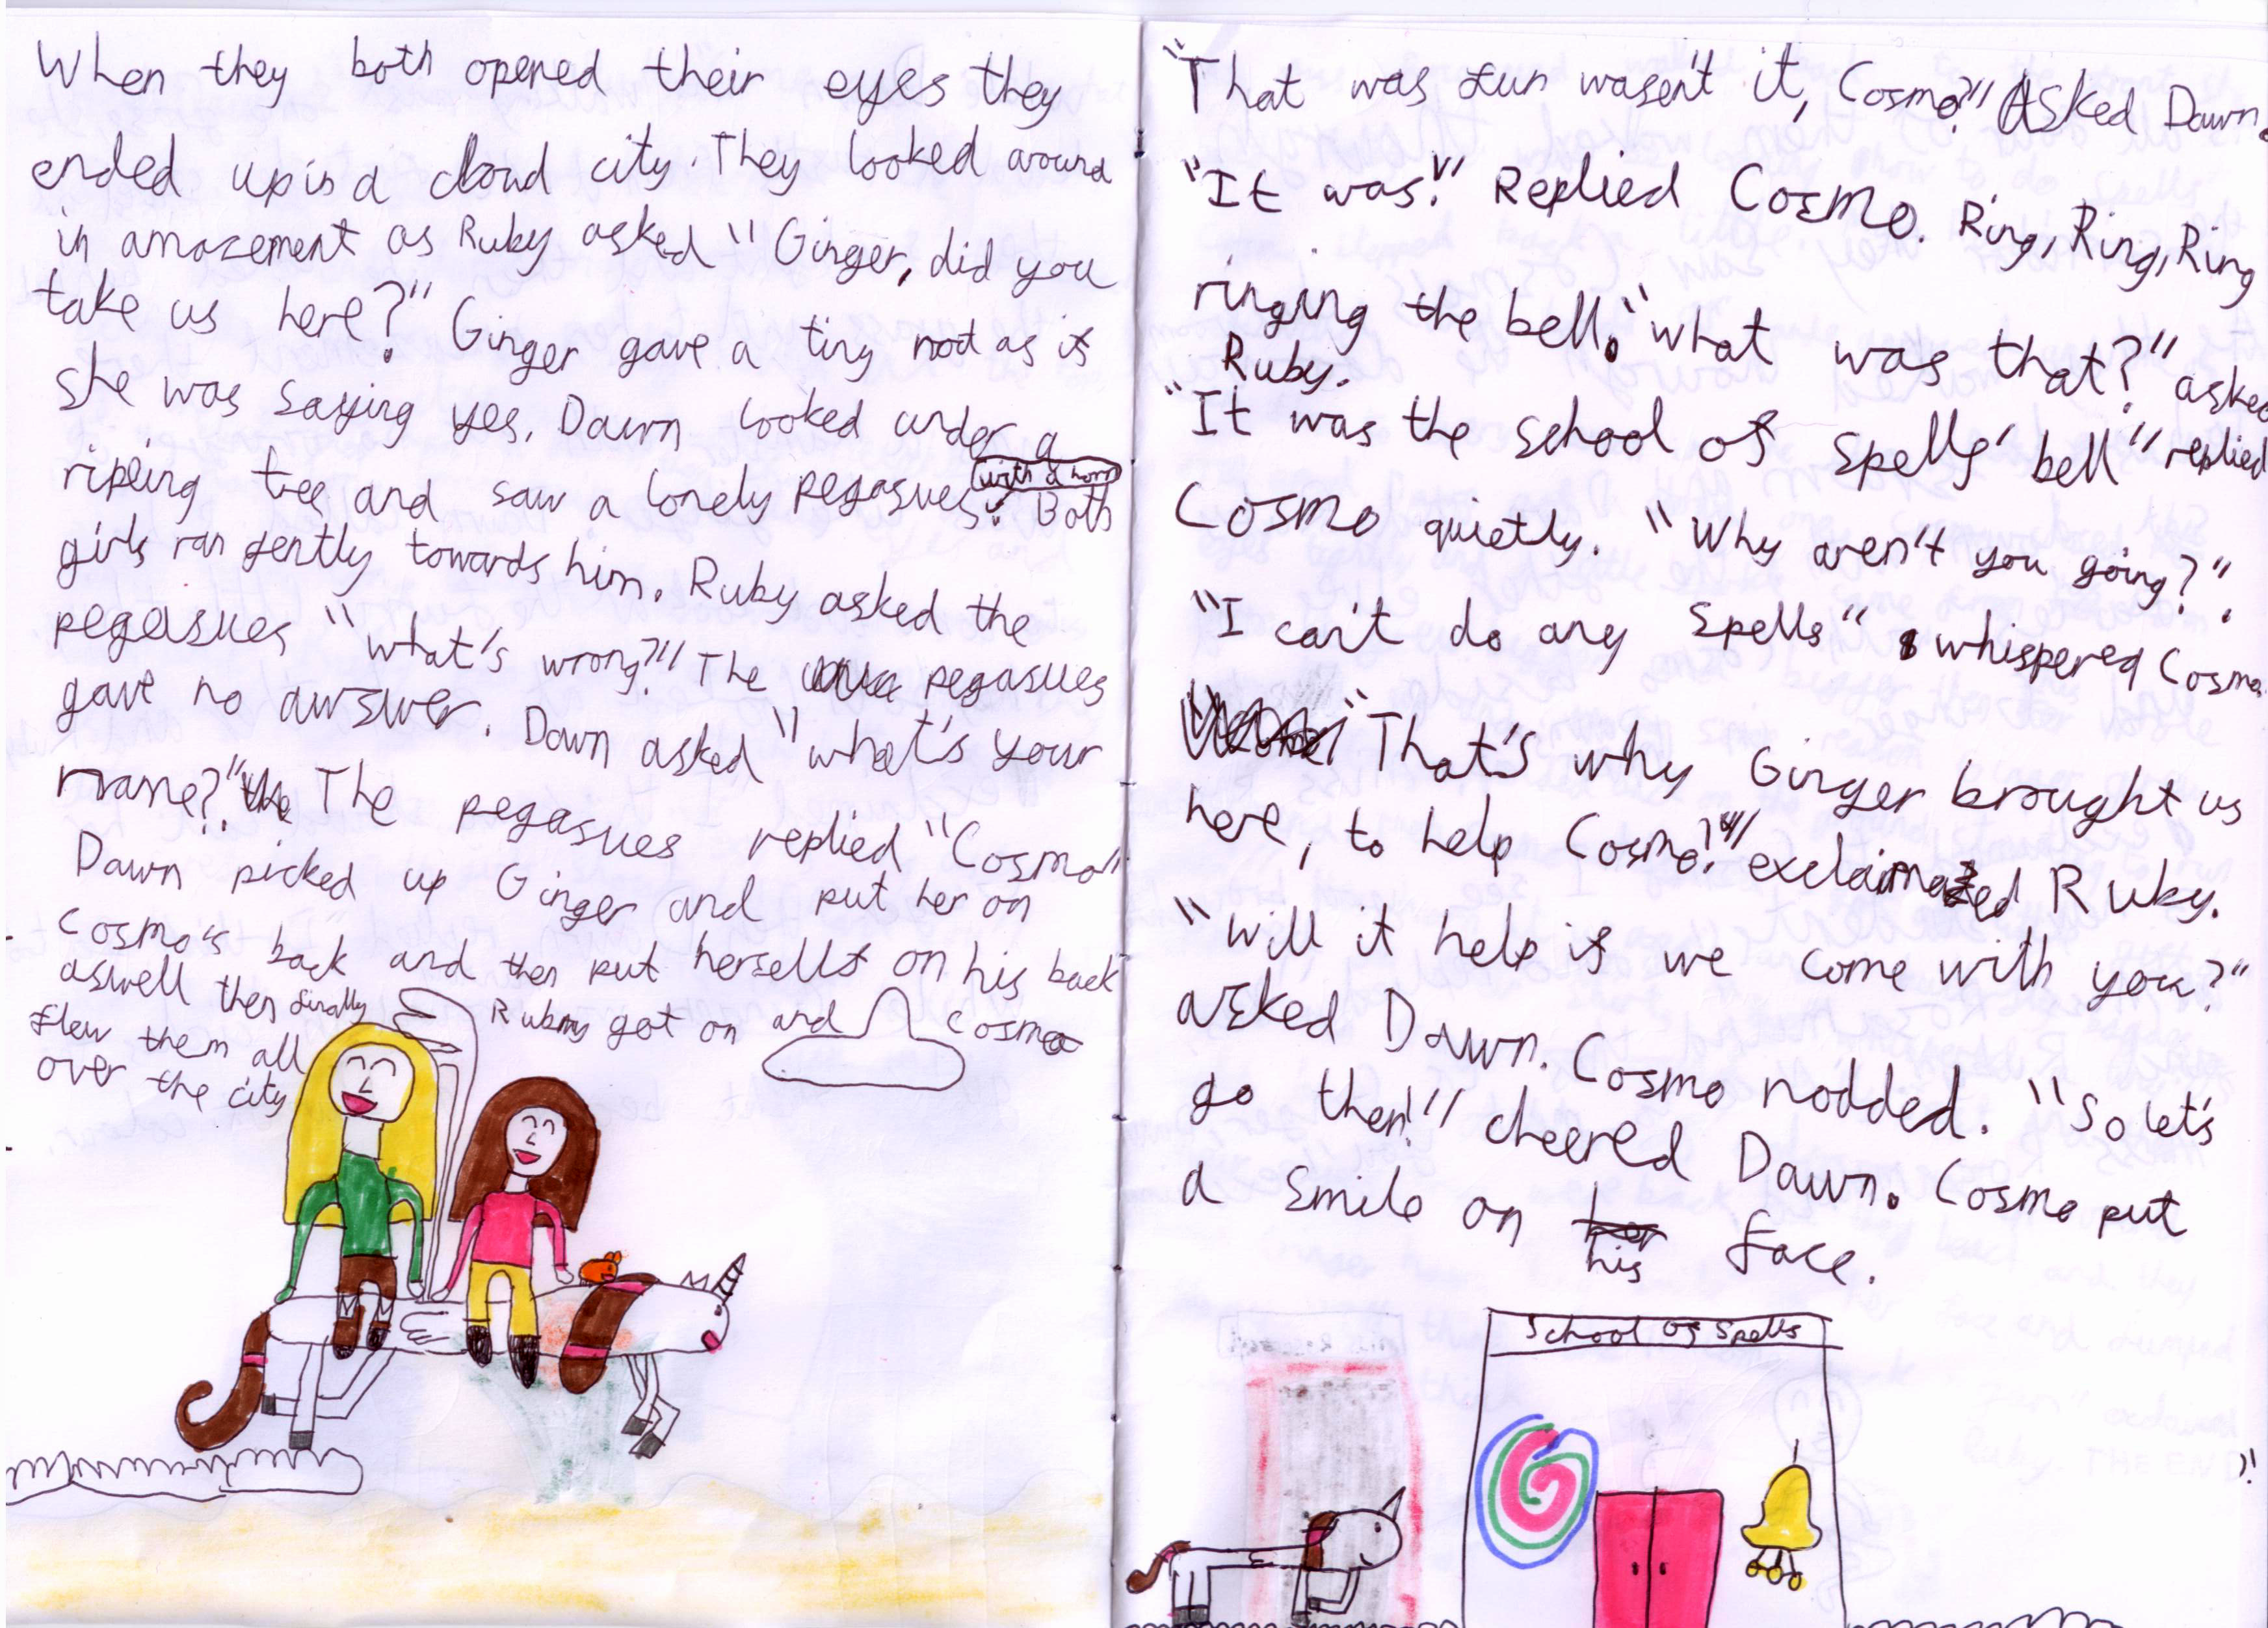 When they both opened their eyes they
ended up in a cloud city. They looked around
in amazement as Ruby asked "Ginger, did you
take us here?" Ginger gave a tiny nod as if
she was saying yes. Dawn looked under a
ripling tree and saw a lonely pegasues with a horn. Both
girls ran gently towards him. Ruby asked the
pegasues "what's wrong?!" The pegasues
gave no awswer. Dawn asked "what's your
name?" The pegasues replied "Cosmo"
Dawn picked up Ginger and put her on
Cosmo's back and then put herself on his back
aswell then finally Ruby got on and Cosmo
flew them all
over the city
"That was fun wasen't it, Cosmo?" Asked Dawn.
"It was!" Replied Cosmo. Ring, Ring, Ring
ringing the bell. "what was that?" asked
Ruby.
"It was the school of spells' bell" replied
Cosmo quietly. "Why aren't you going?"
"I can't do any spells" whispered Cosmo.
"That's why Ginger brought us
here, to help Cosmo!" exclaimed Ruby.
"Will it help if we come with you?"
asked Dawn. Cosmo nodded. "So let's
go then!" cheered Dawn. Cosmo put
a smile on his face.
School of Spells